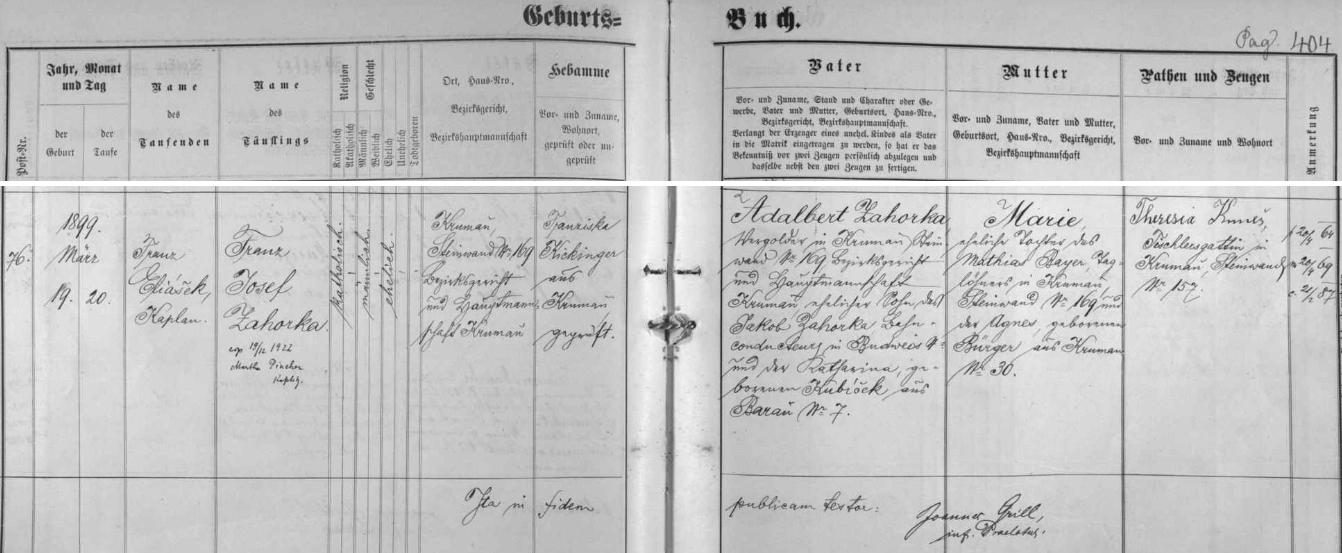 Geburts=
Buch.
Pag. 404
Post-Nr.
Jahr, Monat
und Tag
der
Geburt
der
Taufe
Name
des
Taufenden
Name
des
Täuflings
Religion
Katholisch
Akatholisch
Geschlecht
Männlich
Weiblich
Ehelich
Unehelich
Todtgeboren
Ort, Haus-Nro.,
Bezirksgericht,
Bezirkshauptmannschaft
Hebamme
Vor- und Zuname,
Wohnort,
geprüft oder un-
geprüft
Vater
Vor- und Zuname, Stand und Charakter oder Ge-
werbe, Vater und Mutter, Geburtsort, Haus-Nro.,
Bezirksgericht, Bezirkshauptmannschaft.
Verlangt der Erzeuger eines unehel. Kindes als Vater
in die Matrik eingetragen zu werden, so hat er das
Bekenntniß vor zwei Zeugen persönlich abzulegen und
dasselbe nebst den zwei Zeugen zu fertigen.
Mutter
Vor- und Zuname, Vater und Mutter,
Geburtsort, Haus-Nro., Bezirksgericht,
Bezirkshauptmannschaft
Pathen und Zeugen
Vor- und Zuname und Wohnort
Anmerkung
76.
1899.
März
19. 20.
Franz
Eliašek,
Kaplan.
Franz
Josef
Zahorka.
cop 19/12 1922
Martha
Kaplitz.
katholisch.
männlich.
ehelich.
Krumau,
Steinwand Nr. 169
Bezirksgericht
und Hauptmann-
schaft Krumau
Franziska
Kickinger
aus
Krumau
geprüft.
Adalbert Zahorka,
Vergolder in Krumau, Stein-
wand Nr. 169 Bezirksgericht
und Hauptmannschaft
Krumau, ehelicher Sohn des
Jakob Zahorka Bahn-
conducteurs in Budweis
und der Katharina, ge-
borenen Kubiček aus
Barau Nr. 7.
Marie,
eheliche Tochter des
Mathias Bayer, Tag-
löhners in Krumau,
Steinwand Nr. 169, und
der Agnes, geborenen
Bürger aus Krumau
Nr. 30.
Theresia
Tischlersgattin in
Krumau, Steinwand
Nr. 157.
Ita in fidem
publicam testor:
Joannes Grill,
inf. Praelatus.